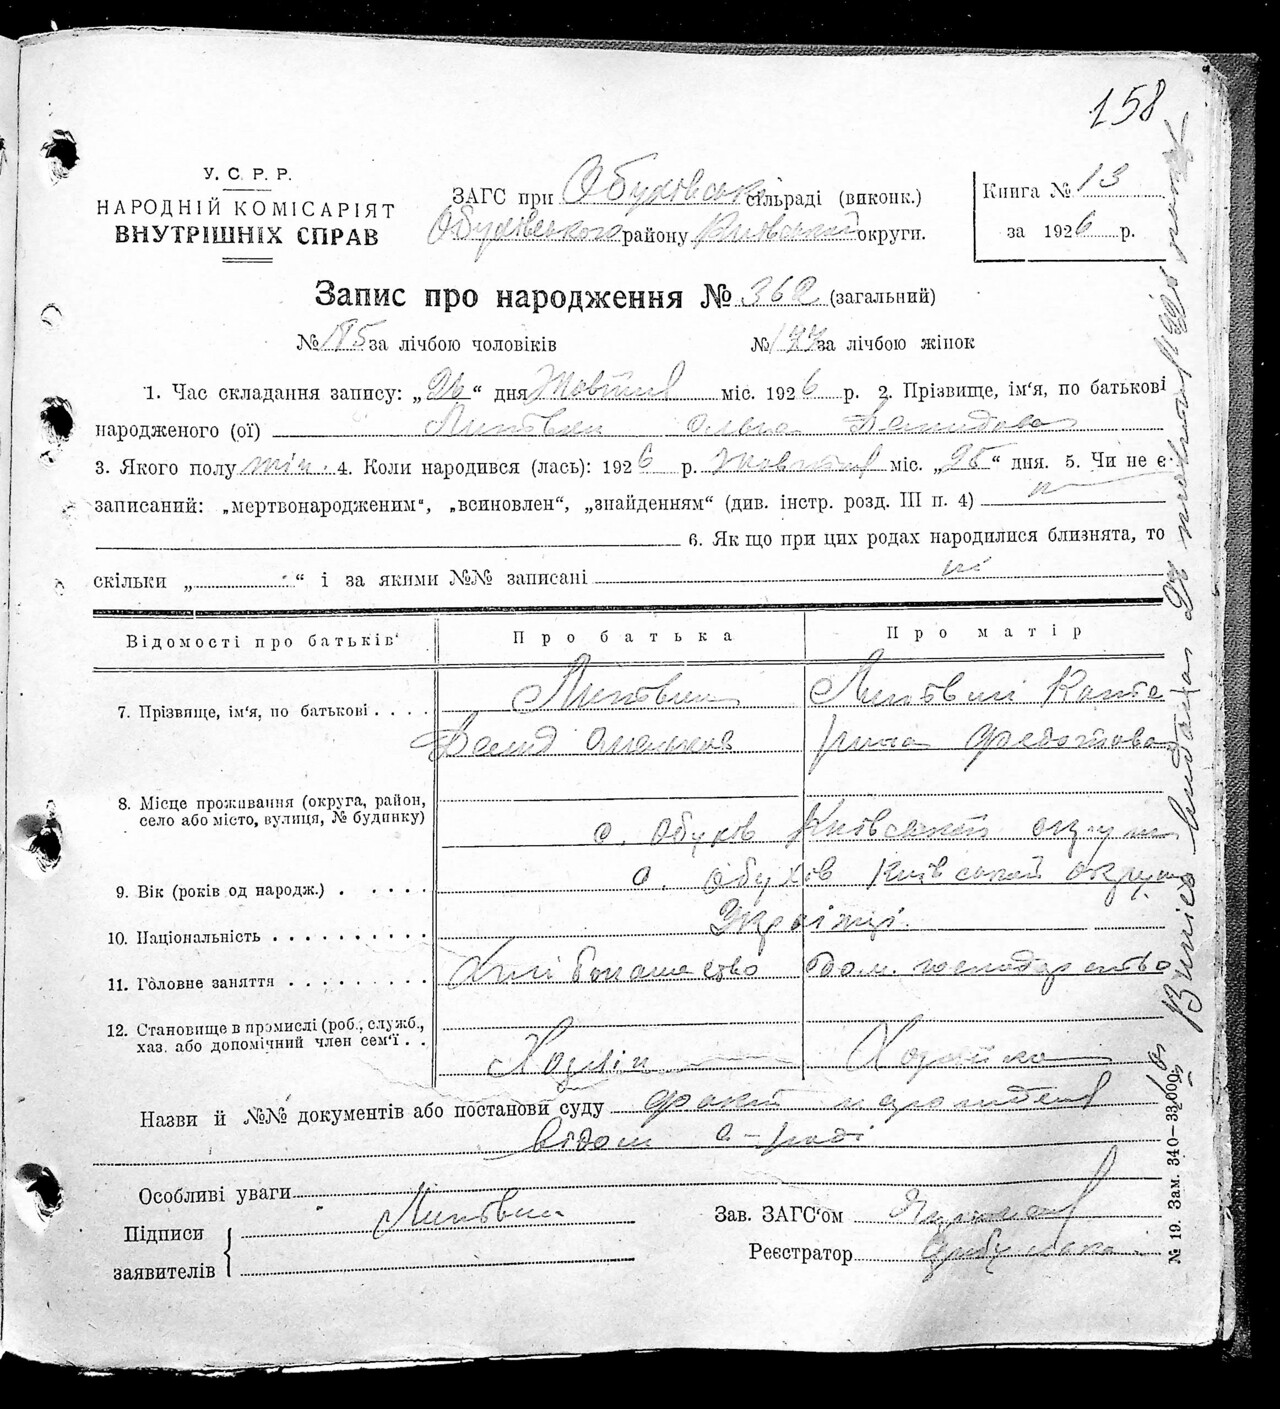 158
У. С. Р. Р.
НАРОДНІЙ КОМІСАРІЯТ
ВНУТРІШНІХ СПРАВ
ЗАГС при Обухівській сільраді (виконк.)
Обухівського району Київської округи.
Книга № 13
за 1926 р.
Запис про народження № 362 (загальний)
№ 185 за лічбою чоловіків № 177 за лічбою жінок
1. Час складання запису: „26“ дня Жовтня міс. 1926 р. 2. Прізвище, ім‘я, по батькові
народженого (ої) Литвин Ольга Демидова
3. Якого полу жін. 4. Коли народився (лась): 1926 р. жовтня міс. „25“ дня. 5. Чи не є
записаний: „мертвонародженим“, „всиновлен“, „знайденням“ (див. інстр. розд. III п. 4) ні
6. Як що при цих родах народилися близнята, то
скільки „ “ і за якими №№ записані ні
Відомості про батьків Про батька Про матір
7. Прізвище, ім‘я, по батькові Литвин Литвин Кате
Демид рина Федотова
8. Місце проживання (округа, район,
село або місто, вулиця, № будинку)
с. Обухів Київської округи
9. Вік (років од народж.) с. Обухів Київської округи
10. Національність Українці.
11. Головне заняття Хліборобство Дом. господарство
12. Становище в промислі (роб., служб.,
хаз. або допомічний член сем‘ї
Хозяїн Хозяйка
Назви й №№ документів або постанови суду факт народження
відом с-раді
Особливі уваги
Підписи
заявителів
Литвин
Зав. ЗАГС‘ом
Реєстратор
№ 19. Зам. 340—33.000.